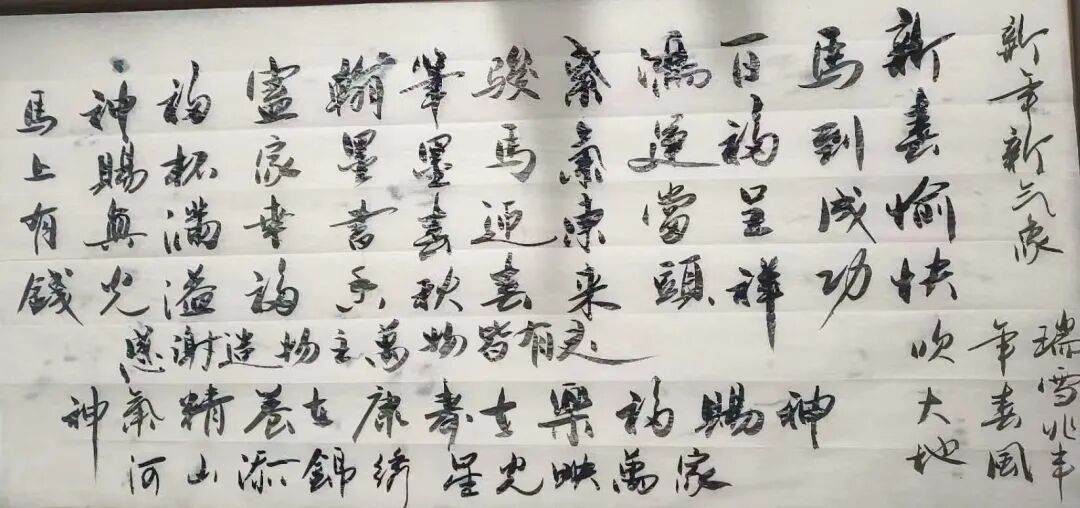 新年新气象
新春愉快
馬到成功
百福呈祥
鴻運當頭
紫氣東来
駿馬迎春
筆墨春秋
翰墨書香
家幸福
福杯滿溢
神賜真光
馬上有錢
瑞雪兆丰
年春風
吹大地
感謝造物主萬物皆有灵
神賜福樂寿康養精氣神
河山添錦綉 星光映萬家